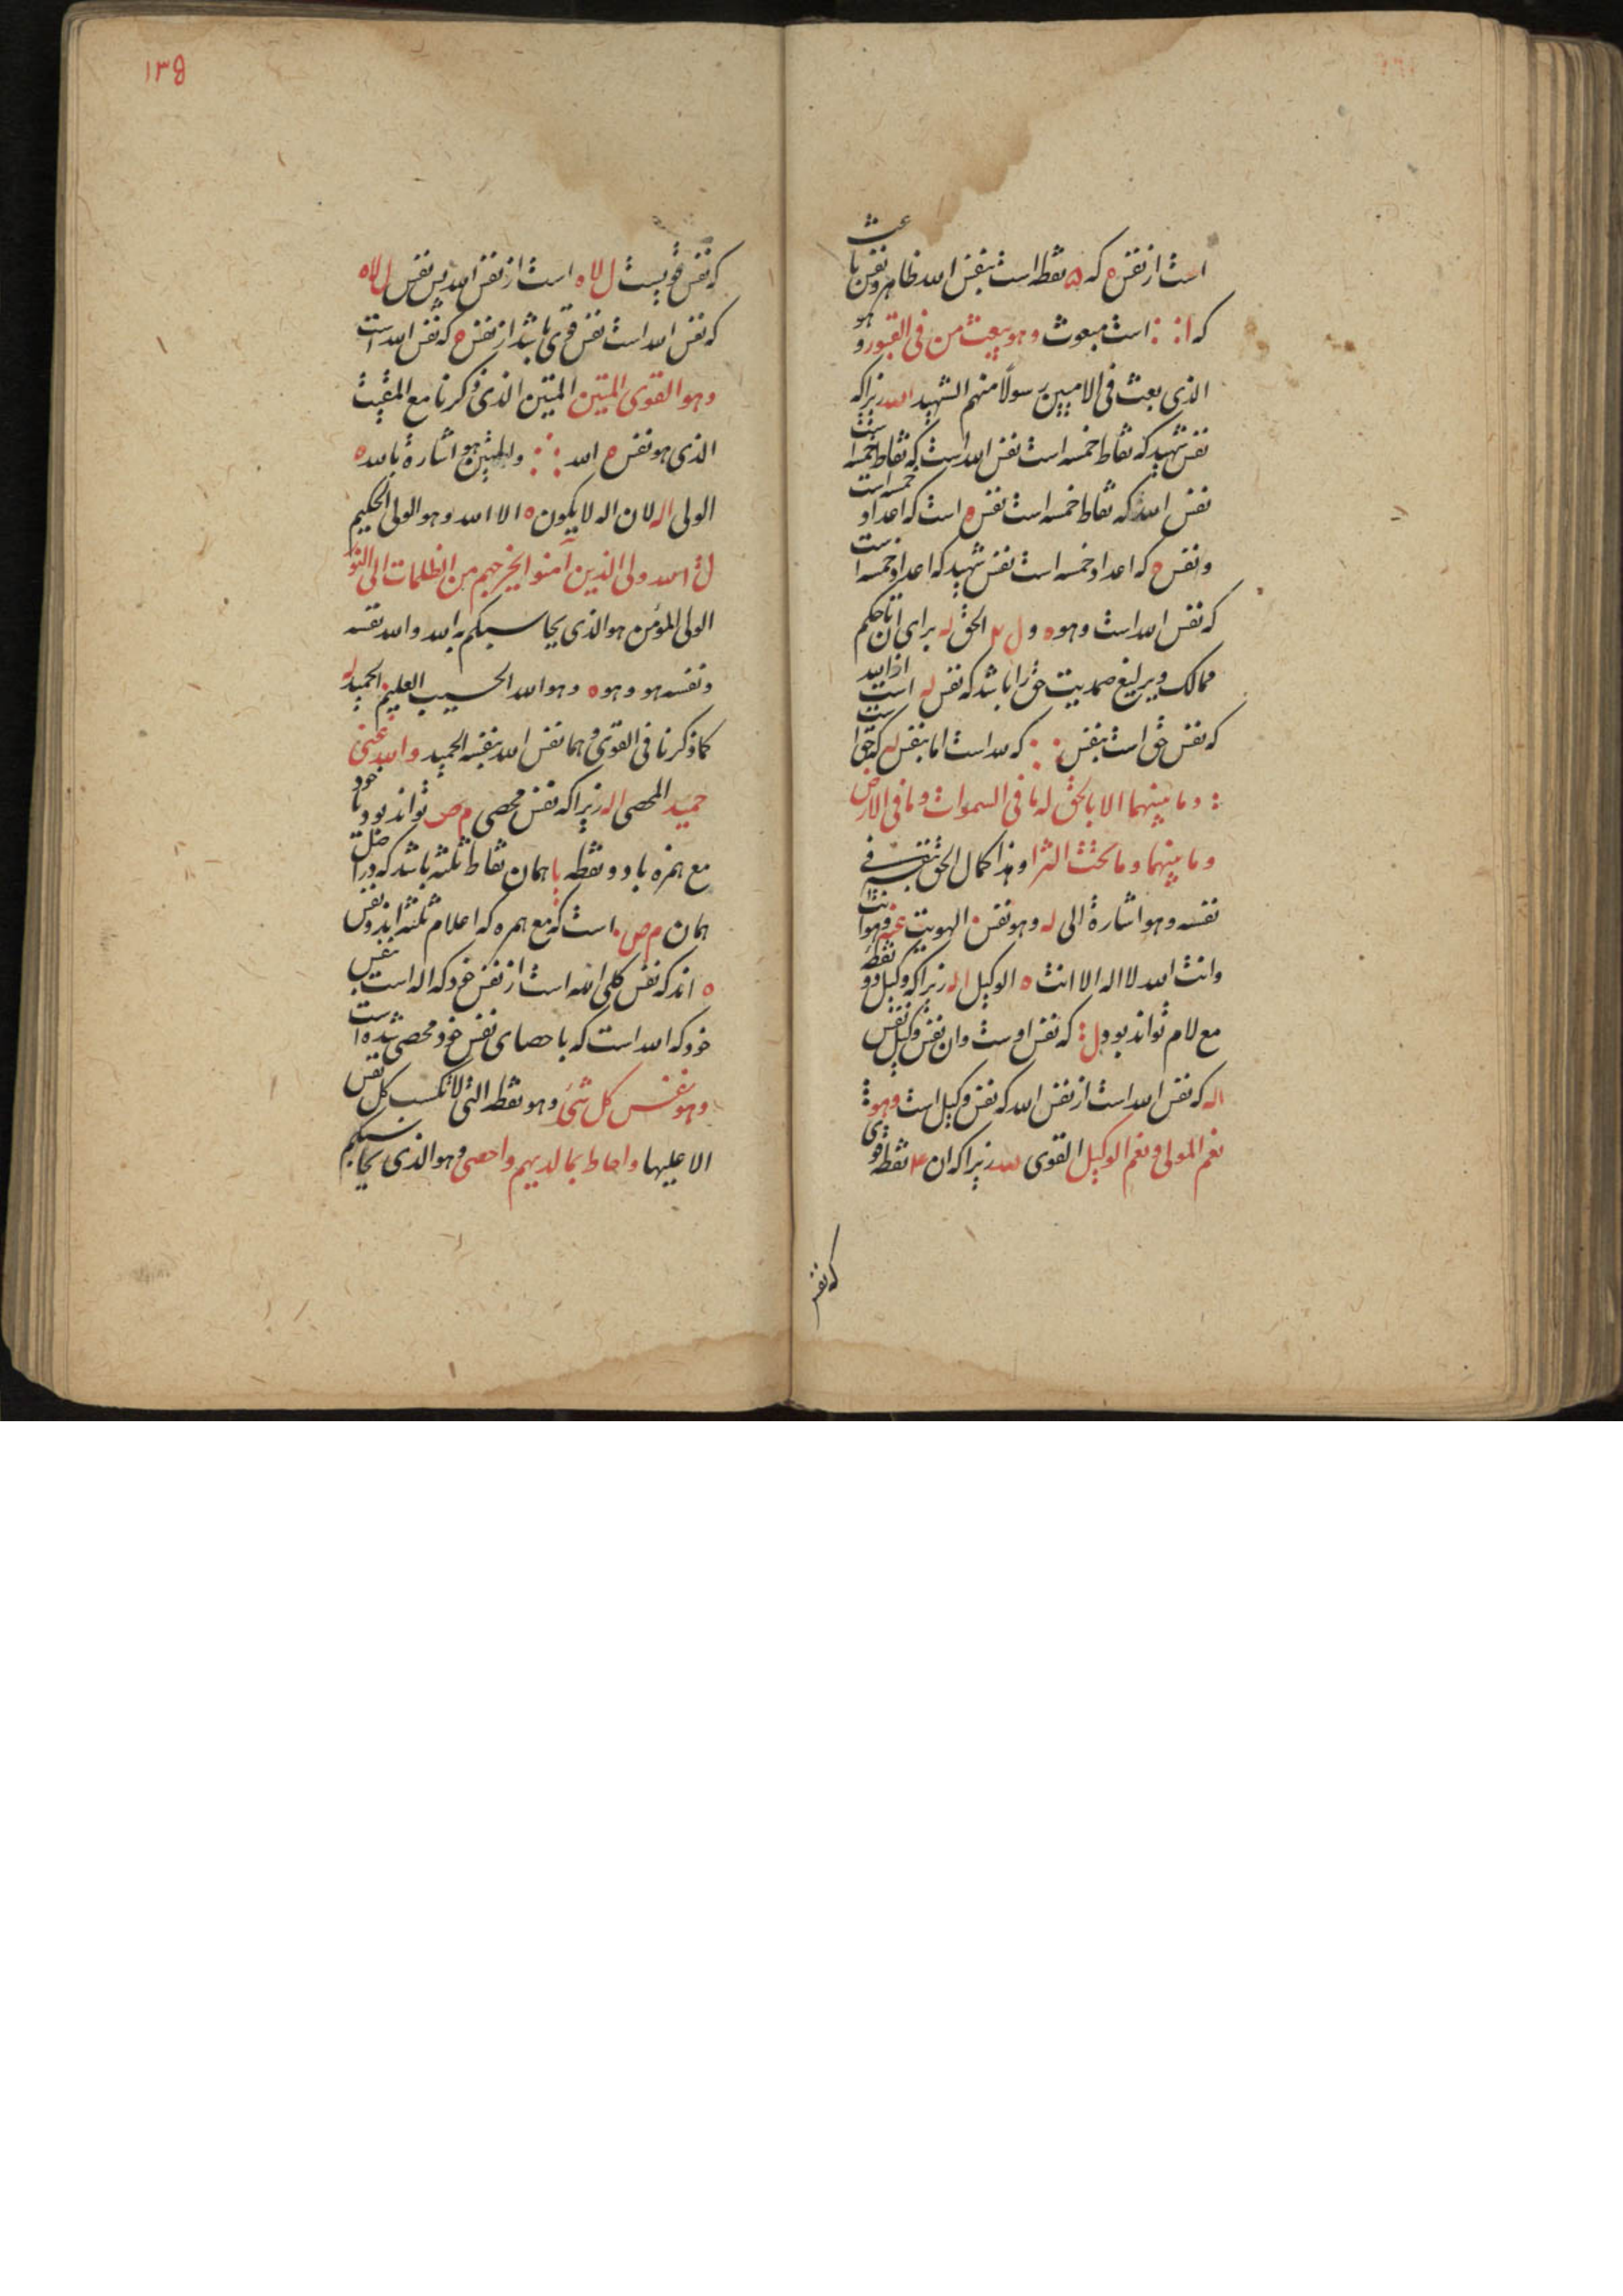 است از نفس ه که ۵ نقطه است بنفس الله ظاهر و نفس باعث
که ا : : است مبعوث وهو یبعث من فی القبور و هو
الذی بعث فی الامیین رسولًا منهم الشهید الله زیراکه
نفس شهید که نقاط خمسه است نفس الله است که نقاط خمسه است
نفس الله که نقاط خمسه است نفس ه است که اعداد خمسه است
و نفس ه که اعداد خمسه است نفس شهید که اعداد خمسه است
که نفس الله است وهو ه و ل الحق له برای ان تا حکم
ممالک ویرلیغ صمدیت حق را باشد که نفس له است از الله
که نفس حق است بنفس : : که لله است اما بنفس له که حق است
: وما بینهما الا بالحق له ما فی السموات وما فی الارض
وما بینهما وما تحت الثرا وهذا کمال الحق بنفسه فی
نفسه وهو اشارة الی له وهو نفس الهویت وهو انت
وانت الله لا اله الا انت ه الوکیل اله زیراکه وکیل دو نقطه
مع لام تواند بود ل : که نفس اوست وان نفس وکیل نفس
اله که نفس الله است از نفس الله که نفس وکیل است وهو :
نعم المولی ونعم الوکیل القوی لله زیراکه ان ۴ نقطه قوی
که نفس
۱۳۵
که نفس قویست ل لاه است از نفس الله پس نفس ل لاه
که نفس الله است نفس قوی باشد از نفس ه که نفس الله است
وهو القوی المتین المتین الذی ذکرنا مع المقیت
الذی هو نفس ه الله : : هو اشارة بالله ه
الولی اله لان اله لا یکون ه الا الله وهو الولی الحکیم
ل الله ولی الذین آمنوا یخرجهم من الظلمات الی النور
الولی المؤمن هو الذی یحاسبکم به الله والله نفسه
ونفسه هو وهو ه وهو الله الحسیب العلیم الحمید له
کما ذکرنا فی القوی وهما نفس الله بنفسه الحمید والله غنی
حمید المحصی اله زیراکه نفس محصی م ص تواند بود با خود
مع همزه با دو نقطه یا همان نقاط ثلثه باشد که در اصل
همان م ص است که مع همزه که اعلام ثلثه اند و نفس
ه اند که نفس کلمی الله است از نفس خود که اله است بنفس
خود که الله است که باحصای نفس خود محصی شده است
وهو نفس کل شئ وهو نقطه التی لا تکسب کل نفس
الا علیها واحاط بما لدیهم واحصی وهو الذی یحاسبکم